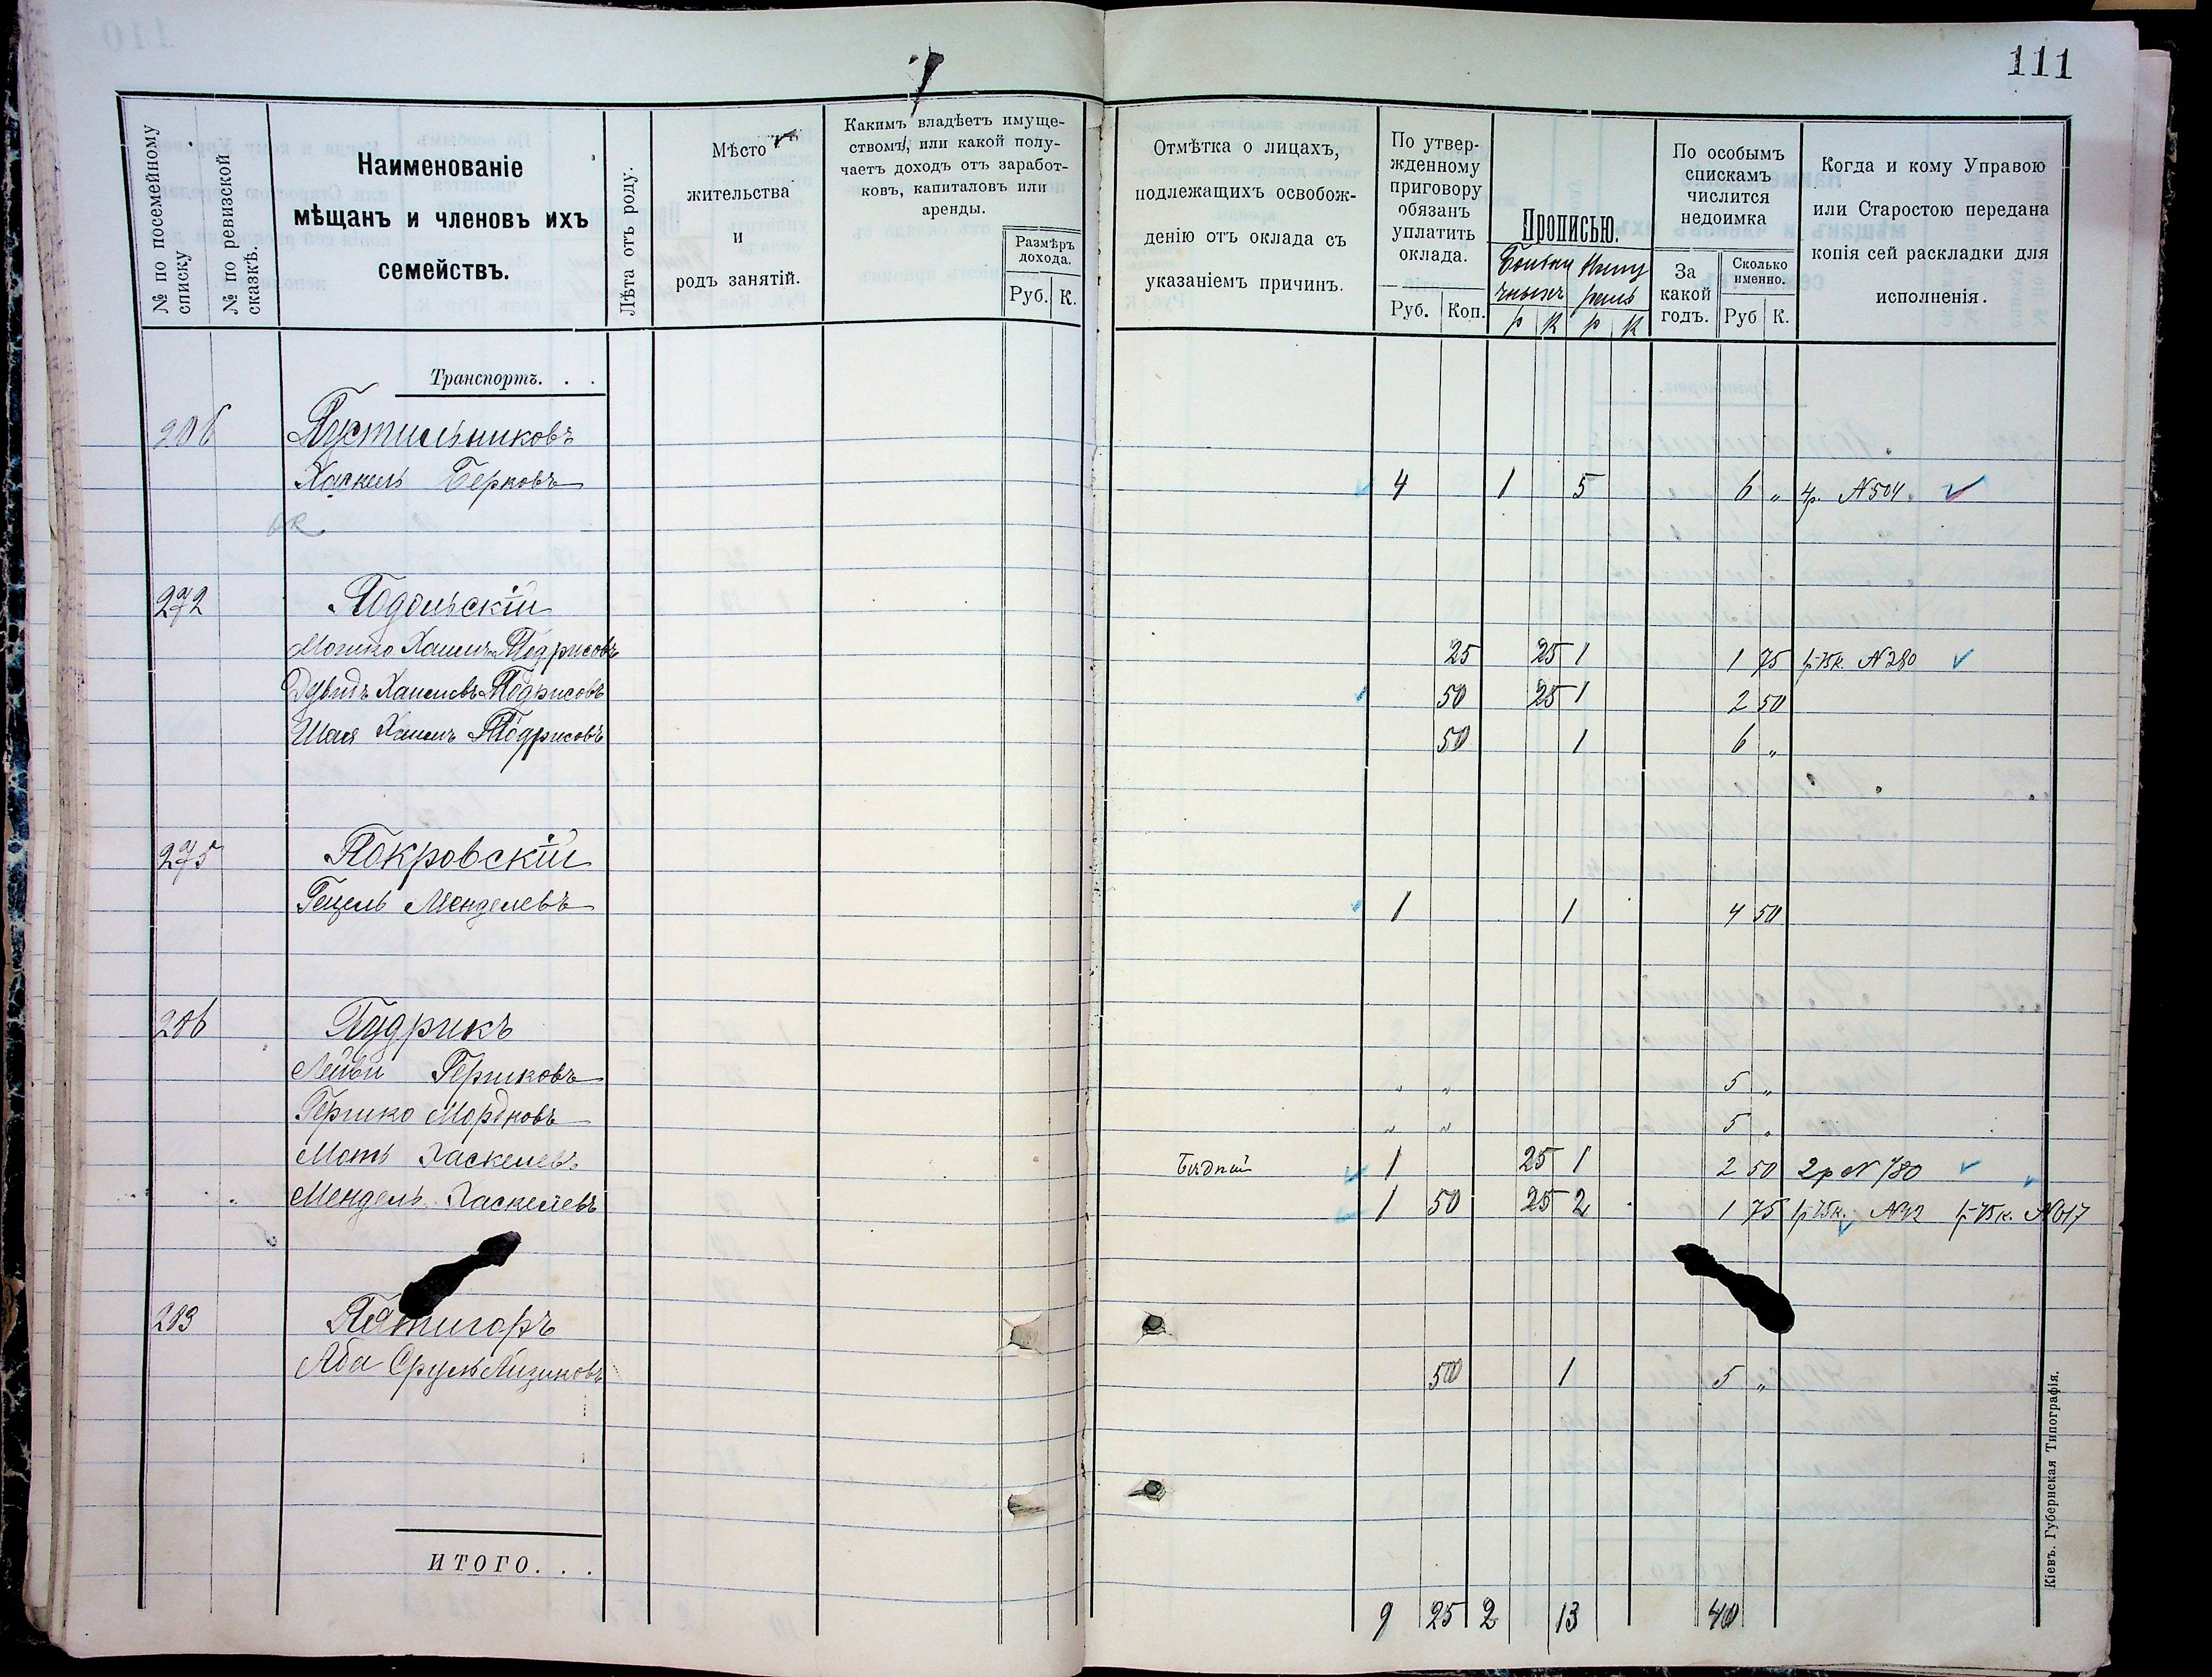 111
№ по посемейному списку
№ по ревизской сказкѣ.
Наименованіе
мѣщанъ и членовъ ихъ
семействъ.
Лѣта отъ роду.
Мѣсто
жительства
и
родъ занятій.
Какимъ владѣетъ имуще-
ствомъ, или какой полу-
чаетъ доходъ отъ заработ-
ковъ, капиталовъ или
аренды.
Размѣръ
дохода.
Руб. К.
Отмѣтка о лицахъ,
подлежащихъ освобож-
денію отъ оклада съ
указаніемъ причинъ.
По утвер-
жденному
приговору
обязанъ
уплатить
оклада.
Руб. Коп.
Прописью.
р к р к
По особымъ
спискамъ
числится
недоимка
За
какой
годъ.
Сколько
именно.
Руб К.
Когда и кому Управою
или Старостою передана
копія сей раскладки для
исполненія.
Транспортъ. . .
206 Пустильниковъ
Хаскель Берковъ 4 1 5 6 „ 4р. №504.
272 Подольскій
Мошко Хаимъ Подрисовъ 25 25 1 1 75 1р 75к. №280
Дувидъ Хаимовъ Подрисовъ 50 25 1 2 50
Шая Хаимъ Подрисовъ 50 1 6 „
275 Покровскій
Гецель Менделевъ 1 1 4 50
286 Пудрикъ
Лейви Гершковъ „ „ 5 „
Гершко Мордковъ „ „ 5 „
Мотъ Хаскелев. Бѣдный 1 25 1 2 50 2р № 780
Мендель Хаскелевъ 1 50 25 2 1 75 1р 75к. №42 1р 75к. №617
289 Пятигоръ
Аба Сруль Айзиковъ 50 1 5 „
ИТОГО. . .
9 25 2 13 40
Кіевъ. Губернская Типографія.